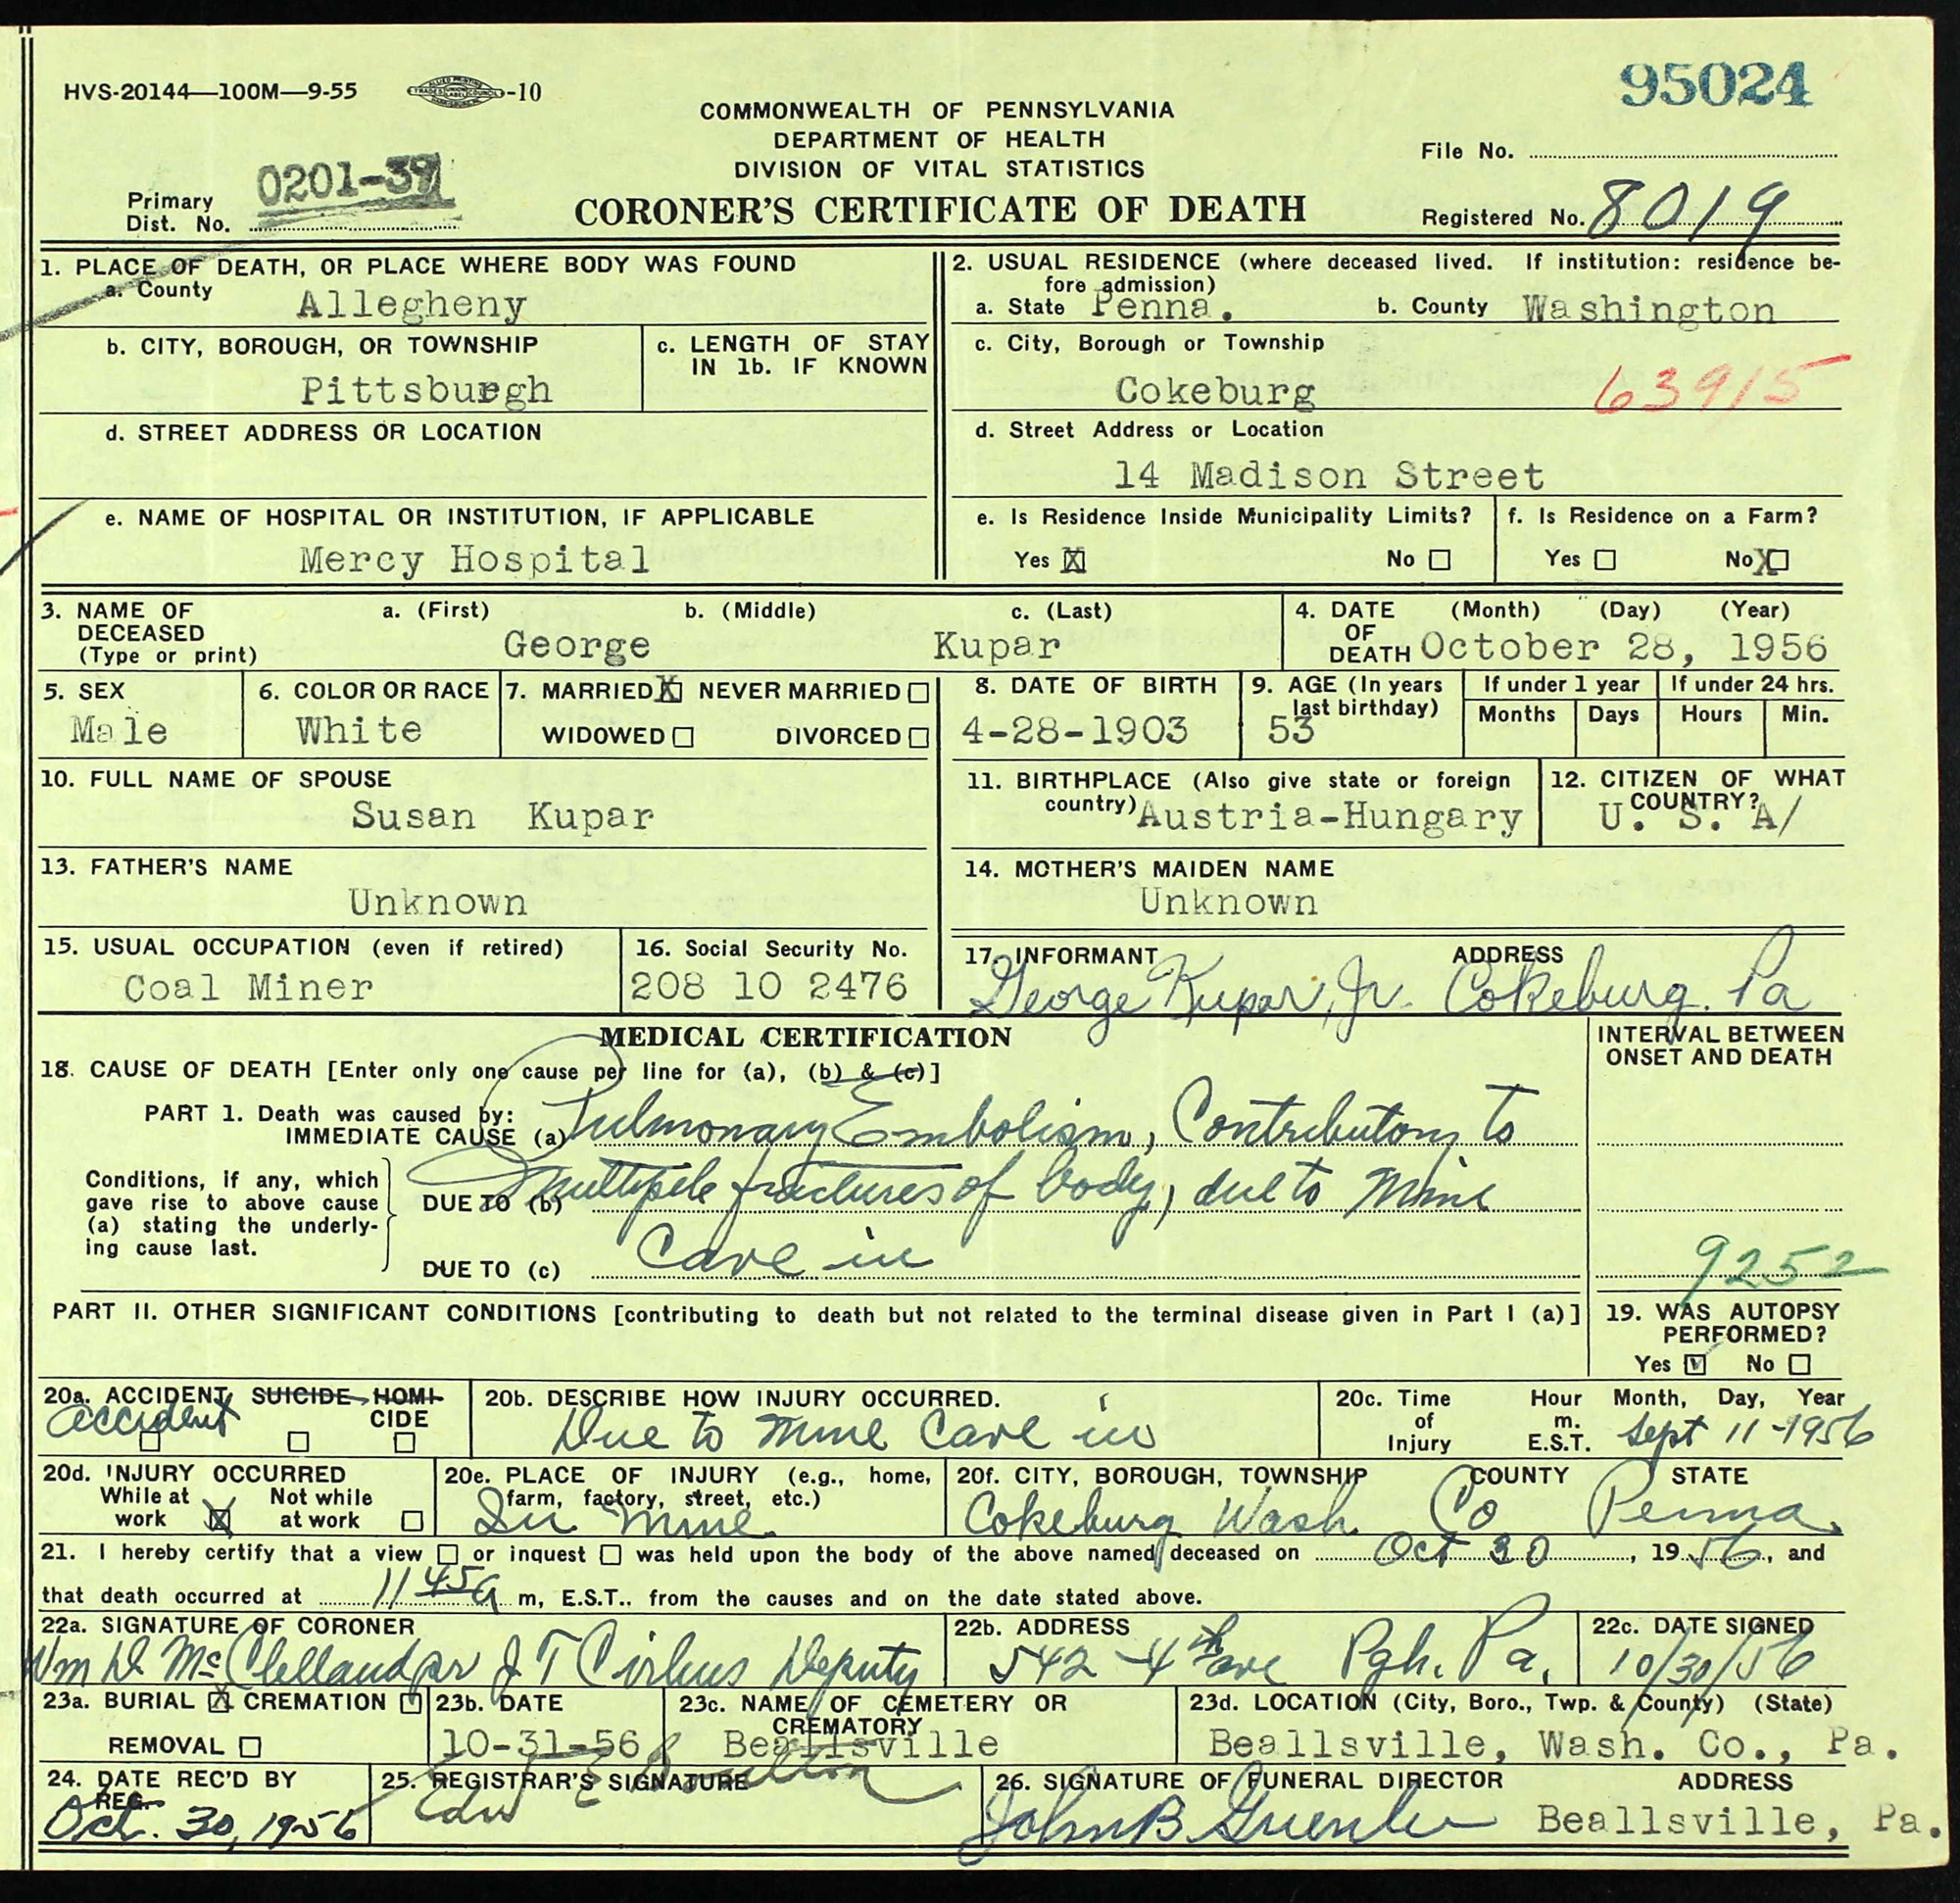 HVS-20144—100M—9-55 -10
95024
COMMONWEALTH OF PENNSYLVANIA
DEPARTMENT OF HEALTH
DIVISION OF VITAL STATISTICS
CORONER'S CERTIFICATE OF DEATH
File No.
Primary Dist. No. 0201-39
Registered No. 8019
1. PLACE OF DEATH, OR PLACE WHERE BODY WAS FOUND
a. County
Allegheny
b. CITY, BOROUGH, OR TOWNSHIP
Pittsburgh
c. LENGTH OF STAY IN 1b. IF KNOWN
d. STREET ADDRESS OR LOCATION
e. NAME OF HOSPITAL OR INSTITUTION, IF APPLICABLE
Mercy Hospital
2. USUAL RESIDENCE (where deceased lived. If institution: residence be-
fore admission)
a. State Penna. b. County Washington
c. City, Borough or Township
Cokeburg 63915
d. Street Address or Location
14 Madison Street
e. Is Residence Inside Municipality Limits?
Yes X No
f. Is Residence on a Farm?
Yes No X
3. NAME OF DECEASED (Type or print)
a. (First) b. (Middle) c. (Last)
George Kupar
4. DATE OF DEATH (Month) (Day) (Year)
October 28, 1956
5. SEX
Male
6. COLOR OR RACE
White
7. MARRIED X NEVER MARRIED
WIDOWED DIVORCED
8. DATE OF BIRTH
4-28-1903
9. AGE (In years last birthday)
53
If under 1 year
Months Days
If under 24 hrs.
Hours Min.
10. FULL NAME OF SPOUSE
Susan Kupar
11. BIRTHPLACE (Also give state or foreign country)
Austria-Hungary
12. CITIZEN OF WHAT COUNTRY?
U. S. A/
13. FATHER'S NAME
Unknown
14. MOTHER'S MAIDEN NAME
Unknown
15. USUAL OCCUPATION (even if retired)
Coal Miner
16. Social Security No.
208 10 2476
17. INFORMANT ADDRESS
George Kupar, Jr. Cokeburg. Pa
MEDICAL CERTIFICATION
INTERVAL BETWEEN ONSET AND DEATH
18. CAUSE OF DEATH [Enter only one cause per line for (a), (b) & (c)]
PART 1. Death was caused by:
IMMEDIATE CAUSE (a) Pulmonary Embolism, Contributory to
Conditions, if any, which gave rise to above cause (a) stating the underly-ing cause last.
DUE TO (b) Multiple fractures of body, due to Mine
DUE TO (c) Cave in
9252
PART II. OTHER SIGNIFICANT CONDITIONS [contributing to death but not related to the terminal disease given in Part I (a)]
19. WAS AUTOPSY PERFORMED?
Yes V No
20a. ACCIDENT SUICIDE HOMI-
CIDE
accident
20b. DESCRIBE HOW INJURY OCCURRED.
Due to Mine Cave in
20c. Time of Injury Hour m. E.S.T. Month, Day, Year
Sept 11-1956
20d. INJURY OCCURRED
While at work X Not while at work
20e. PLACE OF INJURY (e.g., home, farm, factory, street, etc.)
In Mine.
20f. CITY, BOROUGH, TOWNSHIP COUNTY STATE
Cokeburg Wash. Co Penna.
21. I hereby certify that a view or inquest was held upon the body of the above named deceased on Oct 30, 1956, and
that death occurred at 11 45 a m, E.S.T.. from the causes and on the date stated above.
22a. SIGNATURE OF CORONER
Wm D. McClelland pr J T Deputy
22b. ADDRESS
542 - 4th ave Pgh. Pa.
22c. DATE SIGNED
10/30/56
23a. BURIAL X CREMATION
REMOVAL
23b. DATE
10-31-56
23c. NAME OF CEMETERY OR CREMATORY
Beallsville
23d. LOCATION (City, Boro., Twp. & County) (State)
Beallsville, Wash. Co., Pa.
24. DATE REC'D BY REG.
Oct. 30, 1956
25. REGISTRAR'S SIGNATURE
Edw E
26. SIGNATURE OF FUNERAL DIRECTOR ADDRESS
John B Beallsville, Pa.